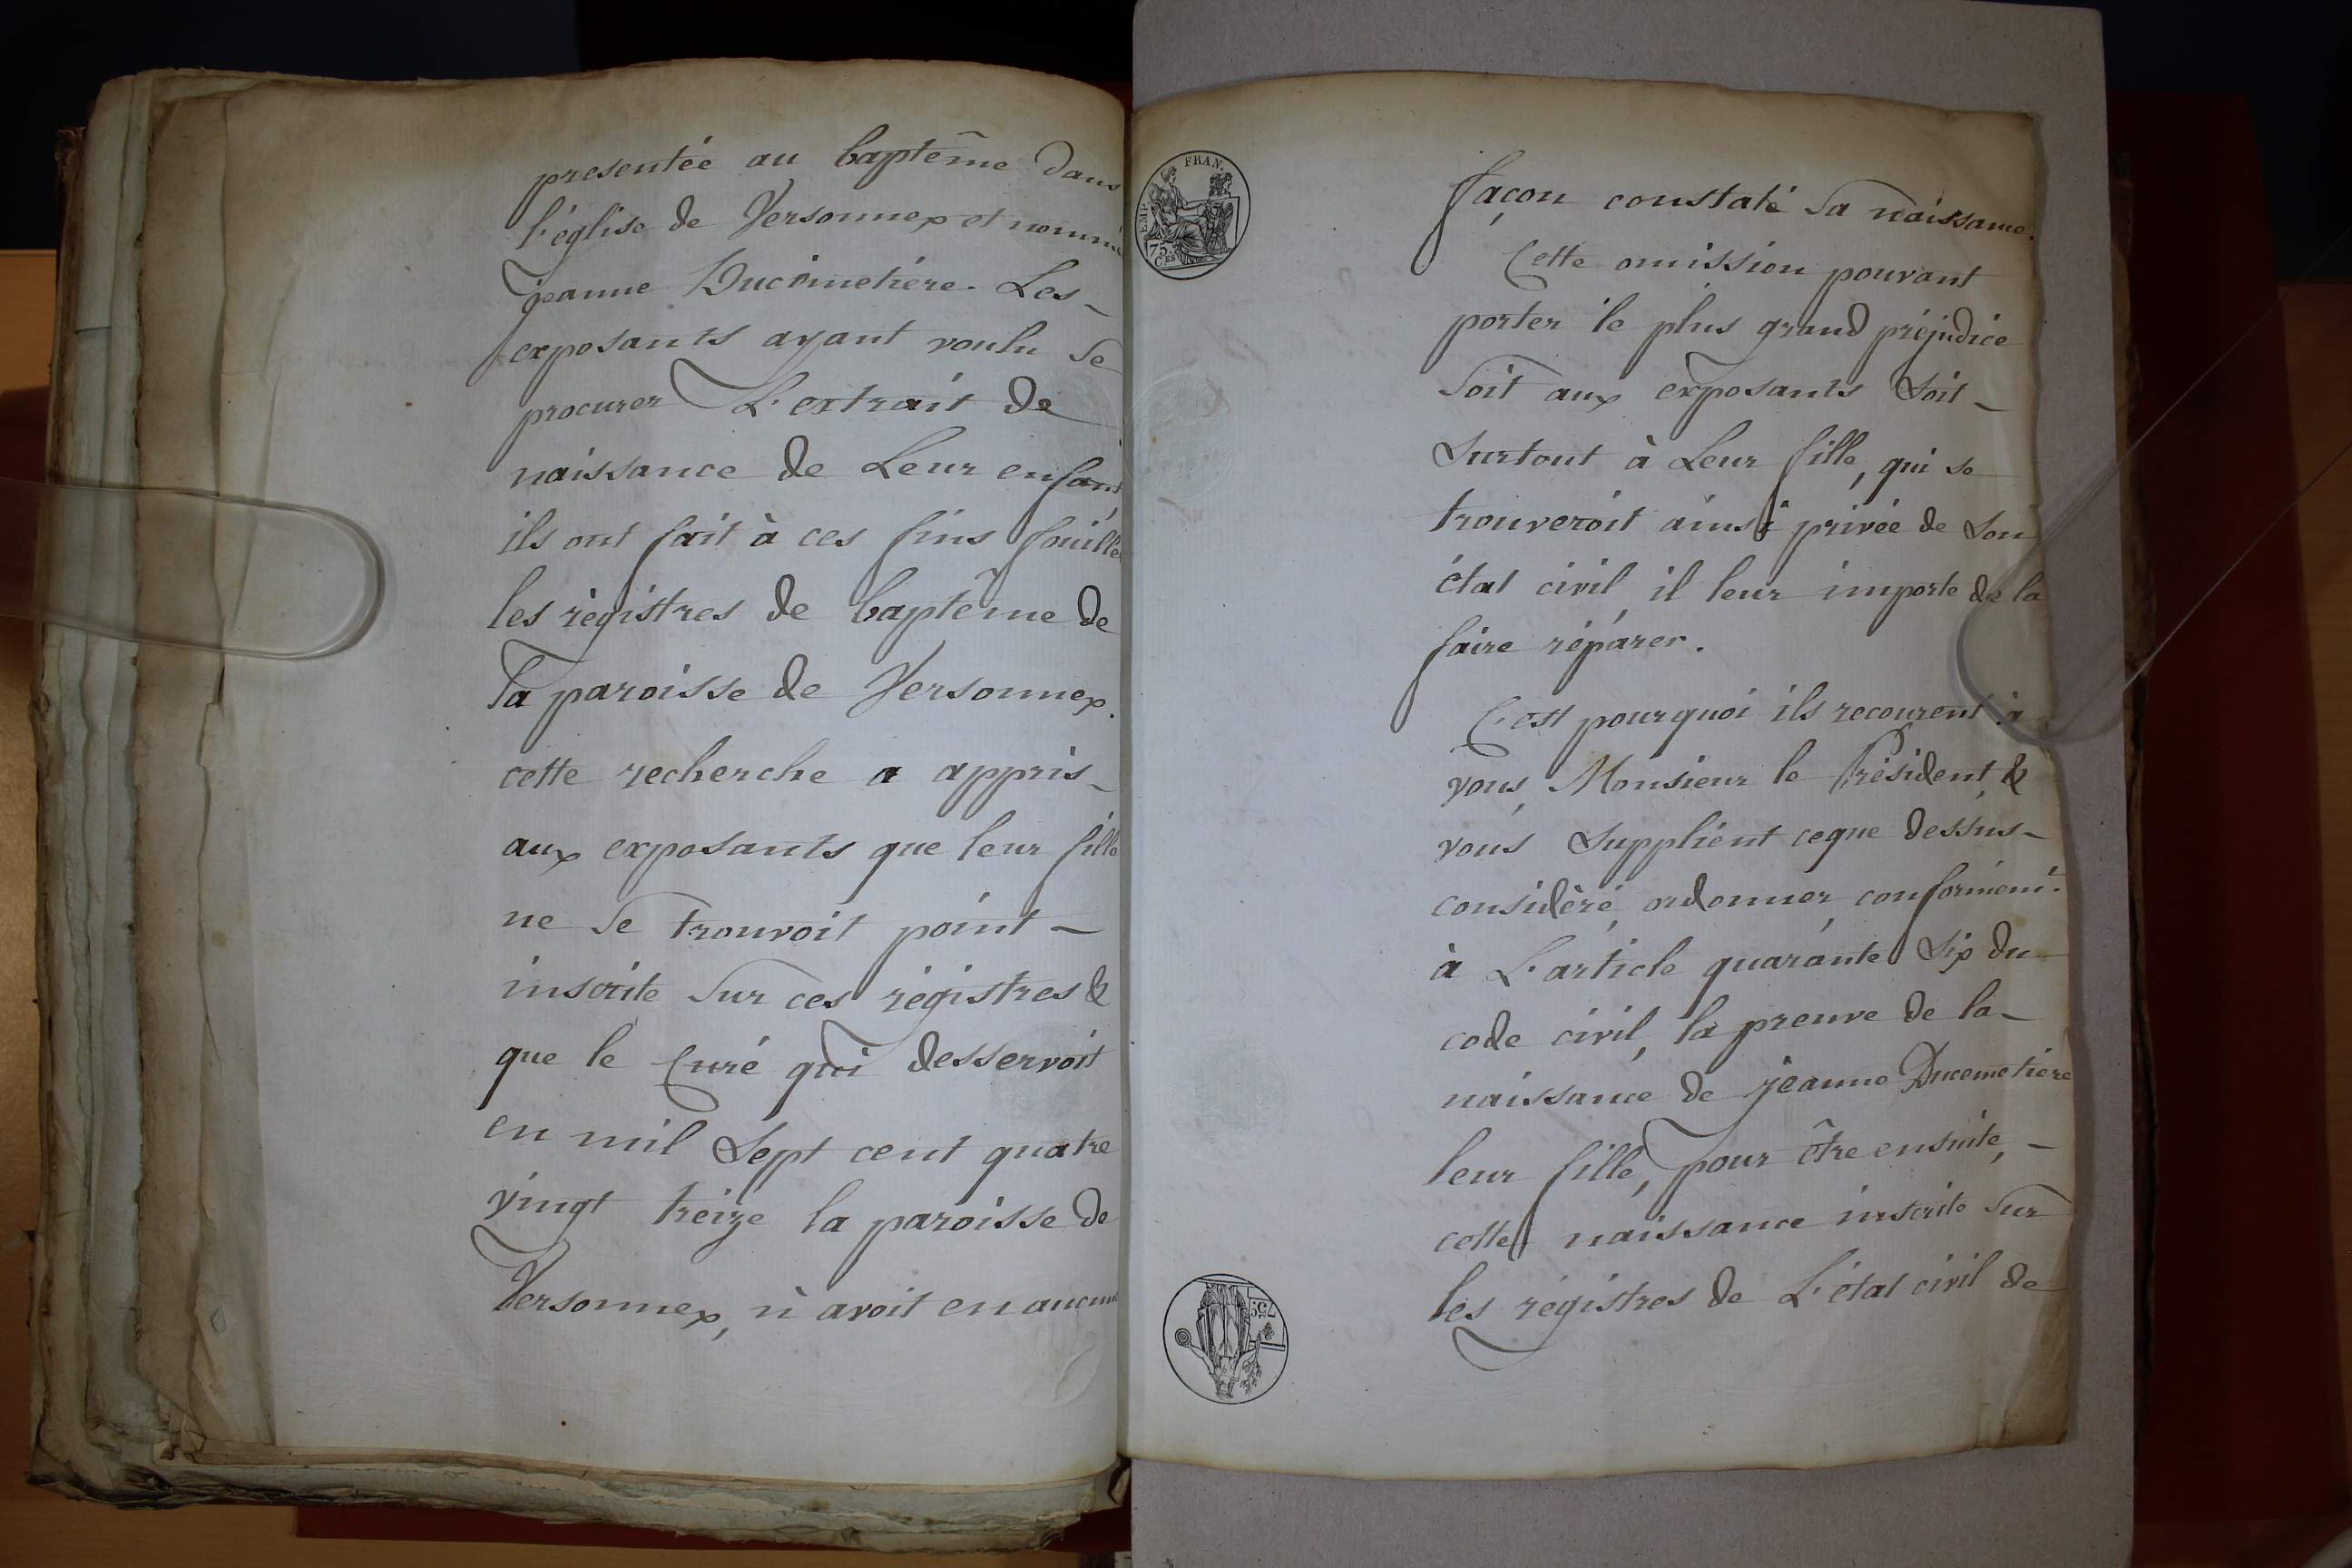 presentée au baptême dans
l'église de Versonnex et nommé
jeanne Ducimetière. Les
exposants ayant voulu se
procurer L'extrait de
naissance de Leur enfant
ils ont fait à ces fins fouiller
les régistres de baptême de
la paroisse de Versonnex.
cette recherche a appris
aux exposants que leur fille
ne se trouvoit point
inscrite sur ces régistres &
que le Curé qui desservoit
en mil Sept cent quatre
vingt treize la paroisse de
Versonnex, n'avoit en aucune
EMP. FRAN.
75.
CES
façon constaté sa naissance.
Cette omission pouvant
porter le plus grand préjudice
soit aux exposants soit
surtout à Leur fille, qui se
trouveroit ainsi privée de son
état civil, il leur importe de la
faire réparer.
C'est pourquoi ils recourent à
vous, Monsieur le Président, &
vous supplient ce que dessus
considèré, ordonner, conforméme.t
à L'article quarante six du
code civil, la preuve de la
naissance de jeanne Ducemetière
leur fille, pour être ensuite,
cette naissance inscrite sur
les régistres de L'état civil de